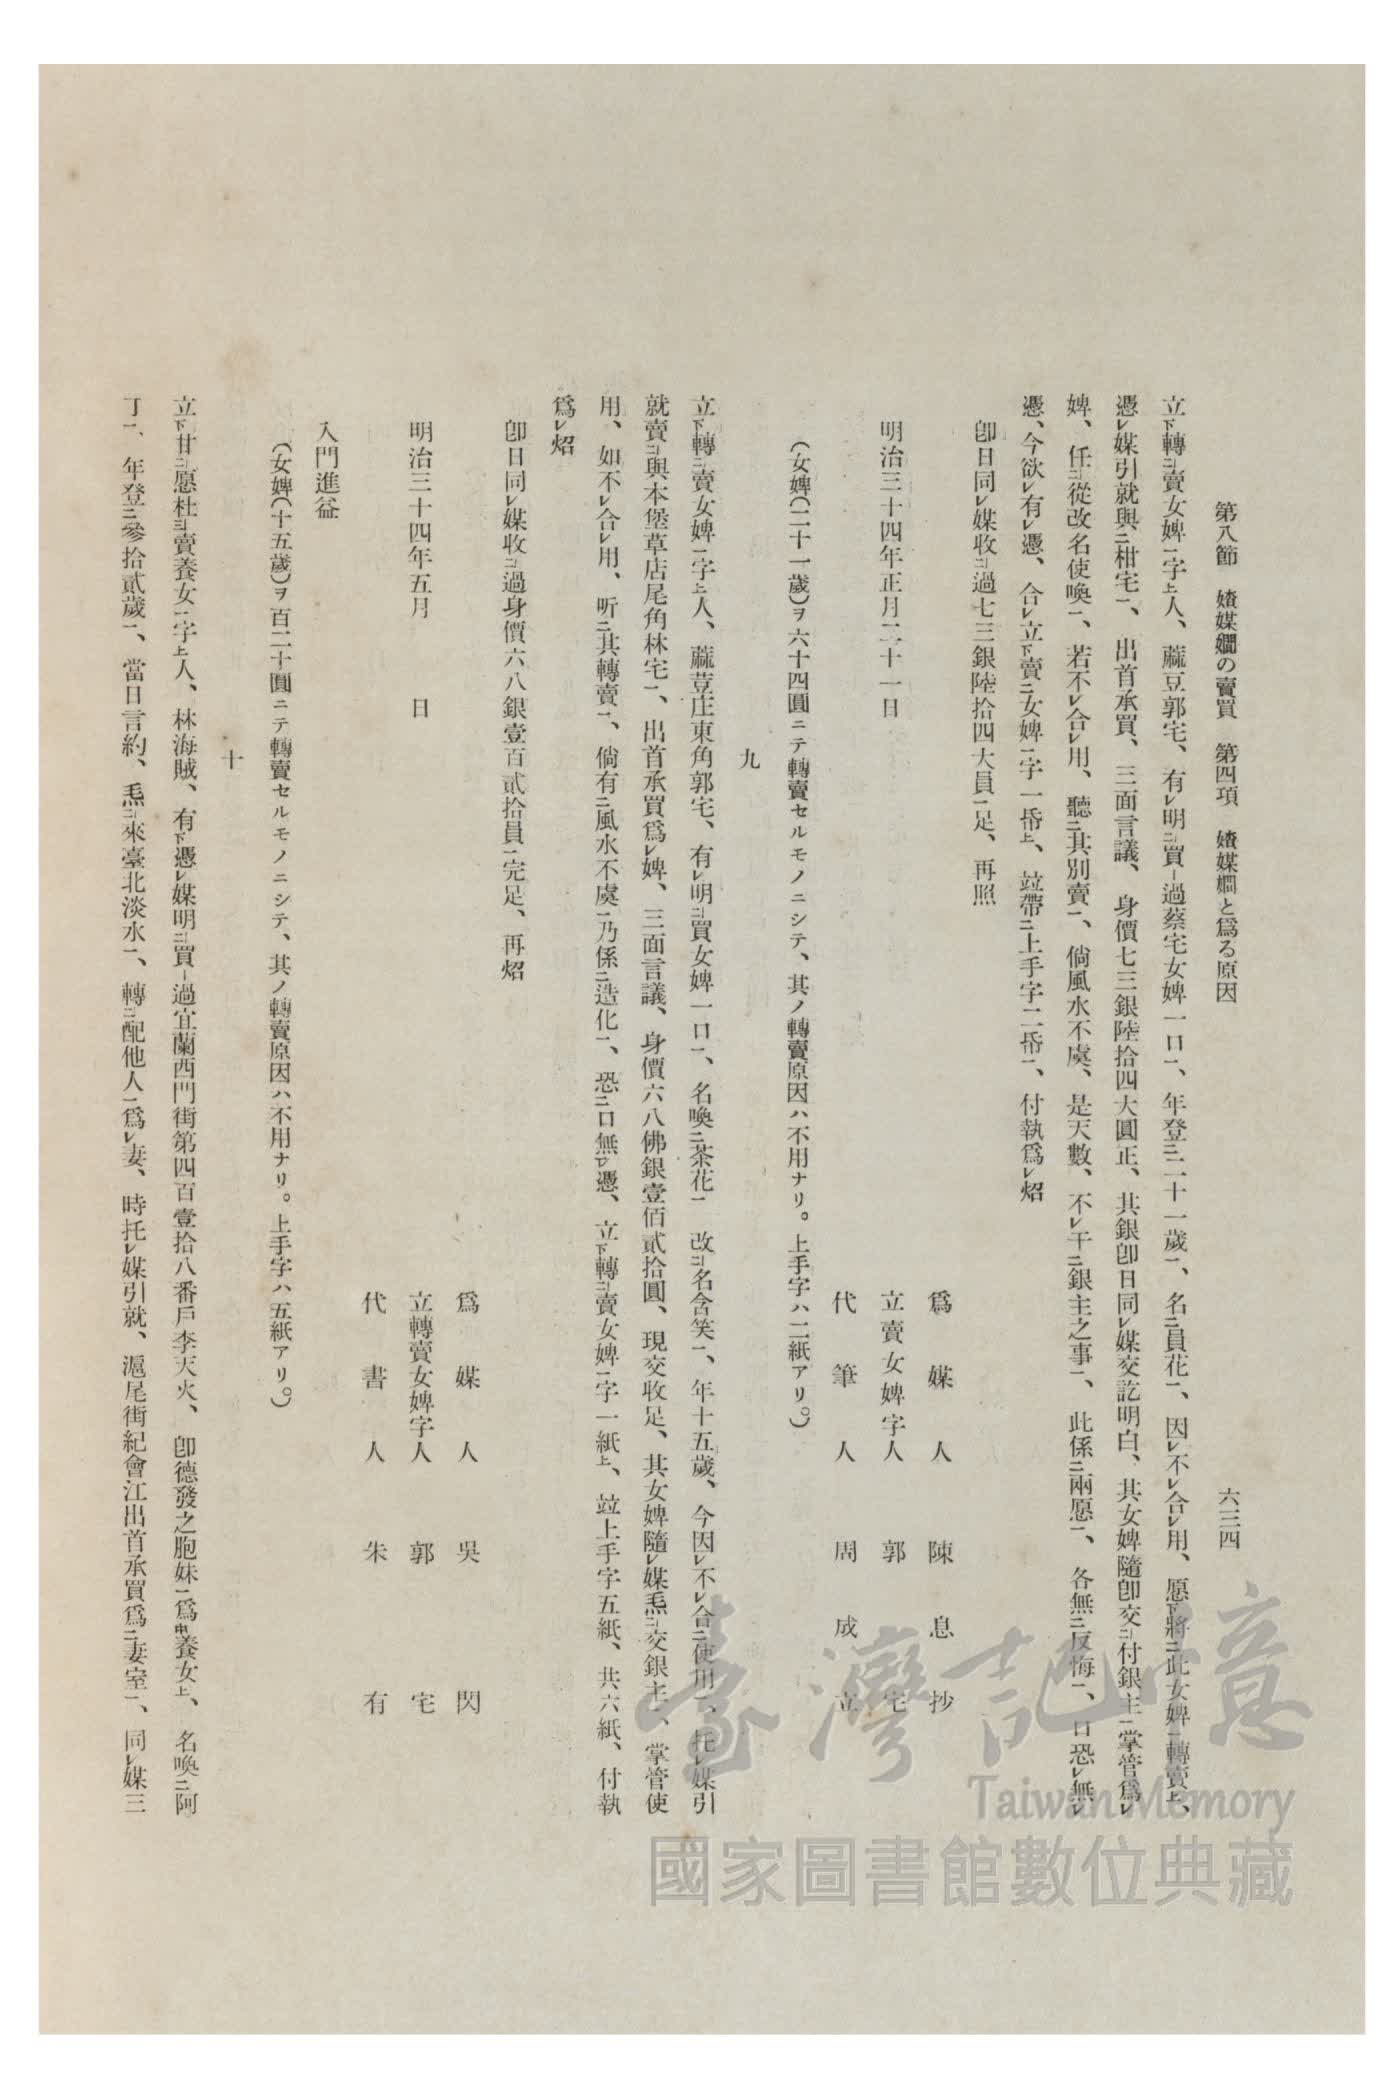 第八節　媎媒嫺の賣買　第四項　媎媒嫺と爲る原因　六三四
立下轉二賣女婢一字上人、蔴豆郭宅、有レ明二買一過蔡宅女婢一口一、年登二二十一歲一、名二員花一、因レ不レ合レ用、愿下將二此女婢一轉賣上、
憑レ媒引就與二柑宅一、出首承買、三面言議、身價七三銀陸拾四大圓正、其銀卽日同レ媒交訖明白、其女婢隨卽交二付銀主一掌管爲レ
婢、任二從改名使喚一、若不レ合レ用、聽二其別賣一、倘風水不虞、是天數、不レ干二銀主之事一、此係二兩愿一、各無二反悔一、口恐レ無レ
憑、今欲レ有レ憑、合レ立下賣二女婢一字一帋上、竝帶二上手字二帋一、付執爲レ炤
卽日同レ媒收二過七三銀陸拾四大員一足、再照
明治三十四年正月二十一日
爲媒人　陳息抄
立賣女婢字人　郭宅
代筆人　周成立
（女婢（二十一歲）ヲ六十四圓ニテ轉賣セルモノニシテ、其ノ轉賣原因ハ不用ナリ。上手字ハ二紙アリ。）
九
立下轉二賣女婢一字上人、蔴荳庄東角郭宅、有レ明二買女婢一口一、名喚二茶花一　改二名含笑一、年十五歲、今因レ不レ合二使用一、托レ媒引
就賣二與本堡草店尾角林宅一、出首承買爲レ婢、三面言議、身價六八佛銀壹佰貳拾圓、現交收足、其女婢隨レ媒𤆬二交銀主一、掌管使
用、如不レ合レ用、听二其轉賣一、倘有二風水不虞一乃係二造化一、恐二口無一レ憑、立下轉二賣女婢一字一紙上、竝上手字五紙、共六紙、付執
爲レ炤
卽日同レ媒收二過身價六八銀壹百貳拾員一完足、再炤
明治三十四年五月　日
爲媒人　吳閃
立轉賣女婢字人　郭宅
代書人　朱有
入門進益
（女婢（十五歲）ヲ百二十圓ニテ轉賣セルモノニシテ、其ノ轉賣原因ハ不用ナリ。上手字ハ五紙アリ。）
十
立下甘二愿杜三賣養女一字上人、林海賊、有下憑レ媒明二買一過宜蘭西門街第四百壹拾八番戶李天火、卽德發之胞妹一爲中養女上、名喚二阿
丁一、年登二參拾貳歲一、當日言約、𤆬二來臺北淡水一、轉二配他人一爲レ妻、時托レ媒引就、滬尾街紀會江出首承買爲二妻室一、同レ媒三
臺灣記憶
Taiwan Memory
國家圖書館數位典藏